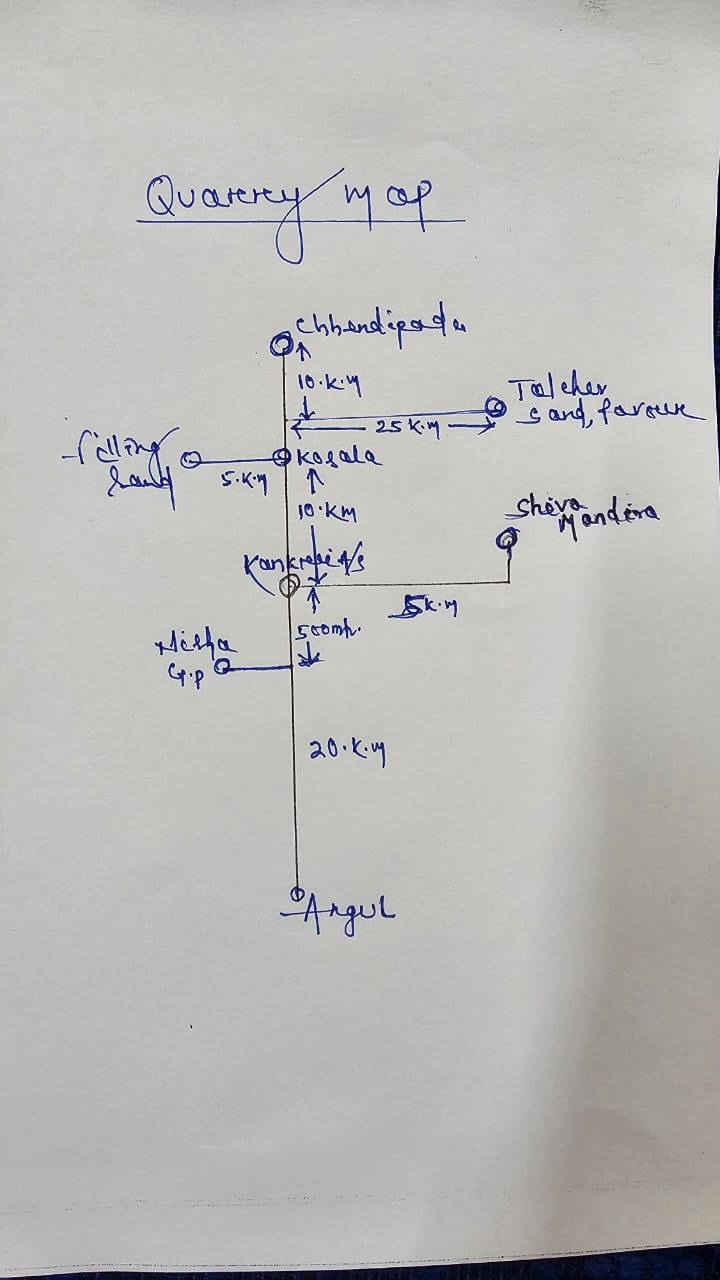 Quarrey map
Chhendipada
10.K.M
Talcher
sand, favour
25 K.M
filling
sand
5.K.M
Kosala
10.KM
Sheva
Mandira
5K.M
500mt.
Nisha
G.P
20.K.M
Angul